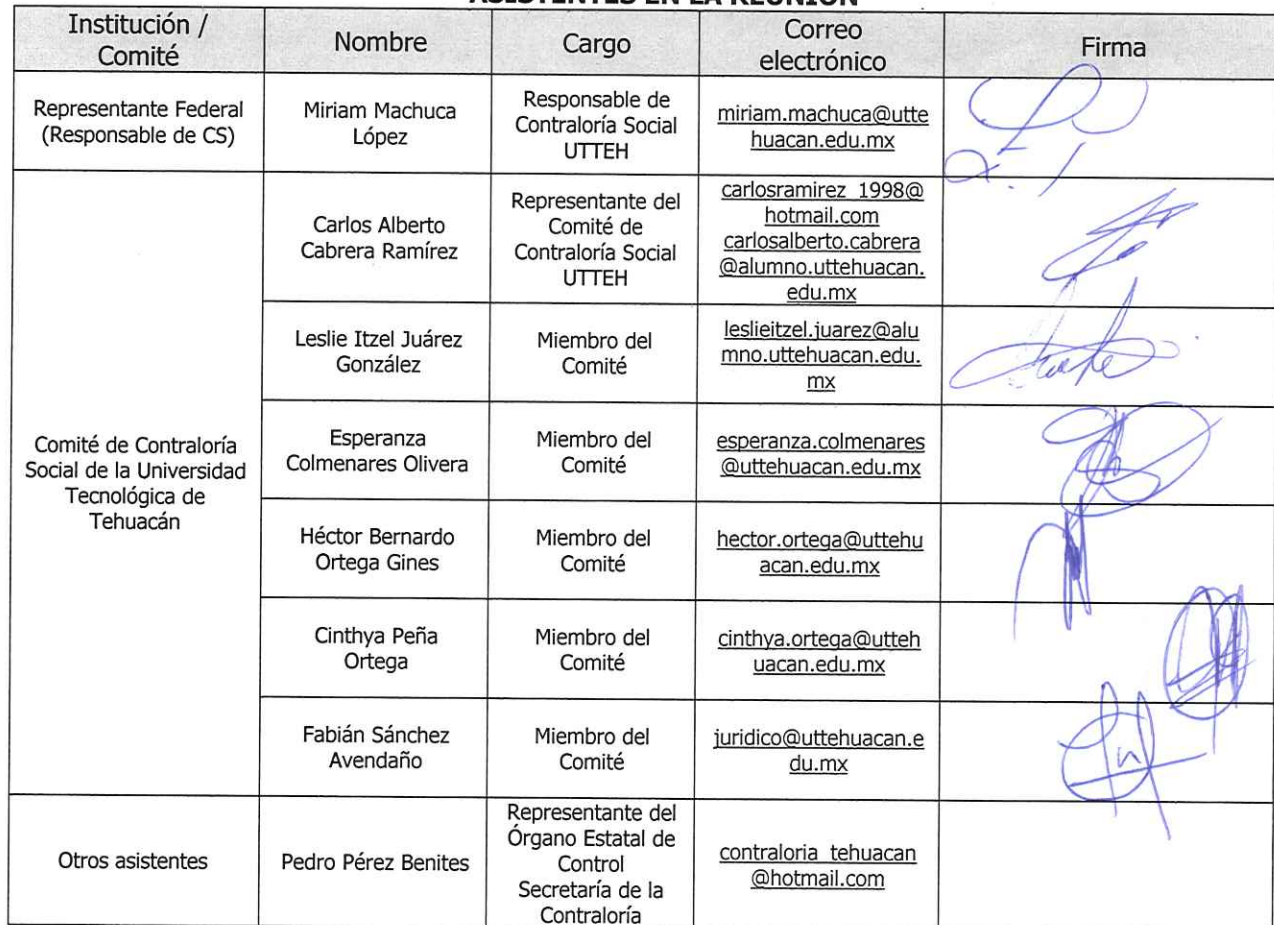 ASISTENTES EN LA REUNIÓN
Institución /
Comité
Nombre
Cargo
Correo
electrónico
Firma
Representante Federal
(Responsable de CS)
Miriam Machuca
López
Responsable de
Contraloría Social
UTTEH
miriam.machuca@utte
huacan.edu.mx
Comité de Contraloría
Social de la Universidad
Tecnológica de
Tehuacán
Carlos Alberto
Cabrera Ramírez
Representante del
Comité de
Contraloría Social
UTTEH
carlosramirez_1998@
hotmail.com
carlosalberto.cabrera
@alumno.uttehuacan.
edu.mx
Leslie Itzel Juárez
González
Miembro del
Comité
leslieitzel.juarez@alu
mno.uttehuacan.edu.
mx
Esperanza
Colmenares Olivera
Miembro del
Comité
esperanza.colmenares
@uttehuacan.edu.mx
Héctor Bernardo
Ortega Gines
Miembro del
Comité
hector.ortega@uttehu
acan.edu.mx
Cinthya Peña
Ortega
Miembro del
Comité
cinthya.ortega@utteh
uacan.edu.mx
Fabián Sánchez
Avendaño
Miembro del
Comité
juridico@uttehuacan.e
du.mx
Otros asistentes
Pedro Pérez Benites
Representante del
Órgano Estatal de
Control
Secretaría de la
Contraloría
contraloria_tehuacan
@hotmail.com